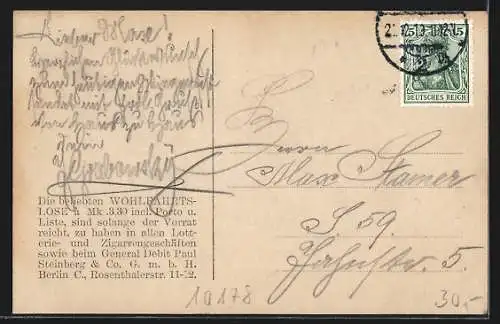 Lieber Max!
herzlichen Glückwunsch
zum heutigen
sendet mit
von Haus zu Haus
Dein
Grabowsky
Die beliebten WOHLFAHRTS-
LOSE à Mk. 3.30 incl. Porto u.
Liste, sind solange der Vorrat
reicht, zu haben in allen Lott-
erie- und Zigarrengeschäften
sowie beim General Debit Paul
Steinberg & Co. G. m. b. H.
Berlin C., Rosenthalerstr. 11-12.
DEUTSCHES REICH
Herrn
Max Stamer
S 59.
Jahnstr. 5.
10178
30,-